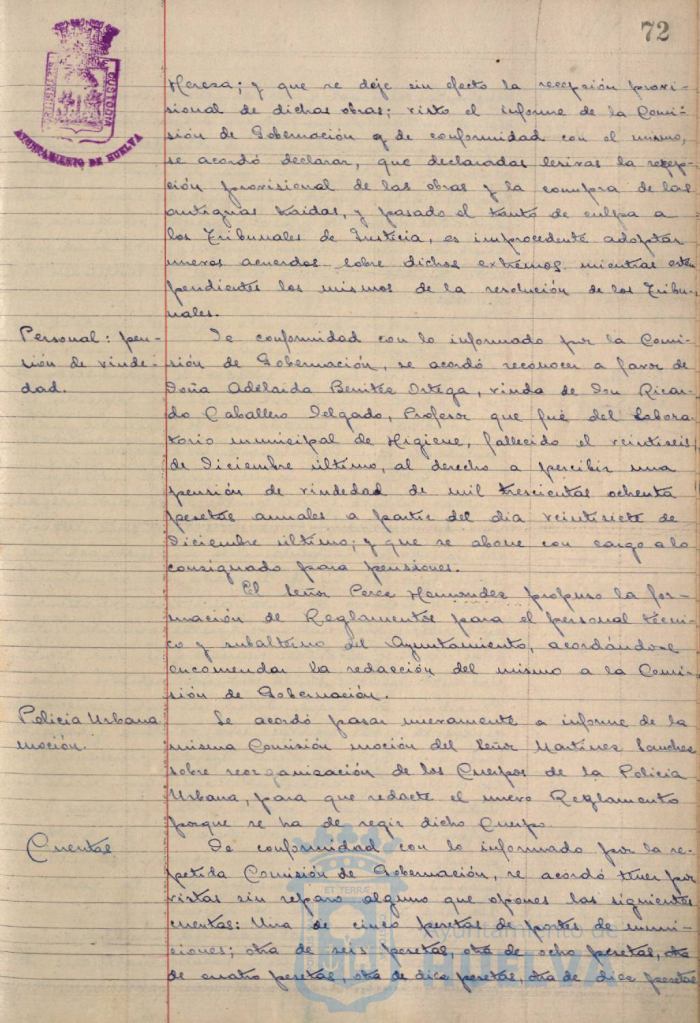 72
AYUNTAMIENTO DE HUELVA
y que se deje sin efecto la recepción provi-
sional de dichas obras; visto el informe de la Comi-
sión de Gobernación y de conformidad con el mismo,
se acordó declarar, que declaradas lesivas la recep-
ción provisional de las obras y la compra de las
antiguas y pasado el tanto de culpa a
los Tribunales de Justicia, es improcedente adoptar
nuevos acuerdos sobre dichos extremos mientras esten
pendientes los mismos de la resolución de los Tribu-
nales.
Personal: pen-
sión de viude-
dad.
De conformidad con lo informado por la Comi-
sión de Gobernación, se acordó reconocer a favor de
Doña Adelaida Benitez Ortega, viuda de Don Ricar-
do Caballero Delgado, Profesor que fué del Labora-
torio municipal de Higiene, fallecido el veintiseis
de Diciembre último, al derecho a percibir una
pensión de viudedad de mil trescientas ochenta
pesetas anuales a partir del dia veintisiete de
Diciembre último; y que se abone con cargo a lo
consignado para pensiones.
El Señor Perez Hernandez propuso la for-
mación de Reglamentos para el personal técni-
co y subalterno del Ayuntamiento, acordándose
encomendar la redacción del mismo a la Comi-
sión de Gobernación.
Policia Urbana
moción.
Se acordó pasar nuevamente a informe de la
misma Comisión moción del Señor Martinez Sanchez
sobre reorganización de los Cuerpos de la Policia
Urbana, para que redacte el nuevo Reglamento
porque se ha de regir dicho Cuerpo.
Cuentas
De conformidad con lo informado por la re-
petida Comisión de Gobernación, se acordó tener por
vistas sin reparo alguno que oponer las siguientes
cuentas: Una de cinco pesetas de portes de muni-
ciones; otra de seis pesetas, otra de ocho pesetas, otra
de cuatro pesetas, otra de diez pesetas, otra de diez pesetas
Ayuntamiento de
HUELVA